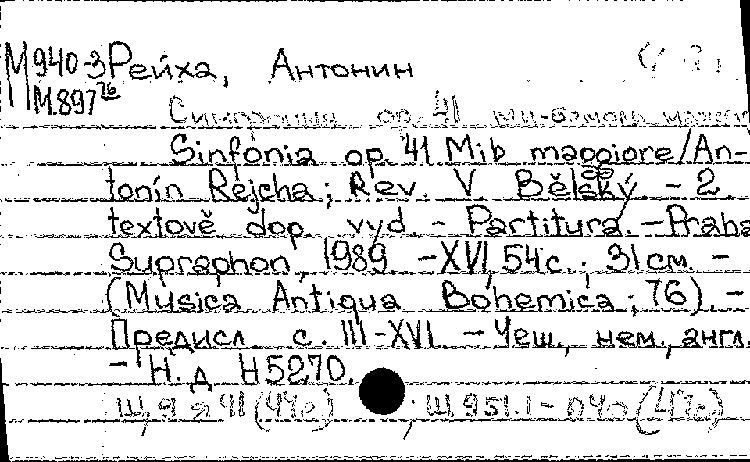 М940-3 Рейха, Антонин
М.897 76
Симфония ор. 41 ми-бемоль мажор
Sinfonia op. 41 Mib maggiore / An-
tonín Rejcha ; Rev. V. Bělský - 2
textově dop. vyd. - Partitura. - Praha
Supraphon, 1989. - XVI, 54 с. ; 31 см. -
(Musica Antiqua Bohemica ; 76). -
Предисл. с. III-XVI. - Чеш., нем., англ.
- Н. д. Н5270.
Щ 9 41 (44е) ; Щ 951.1 -